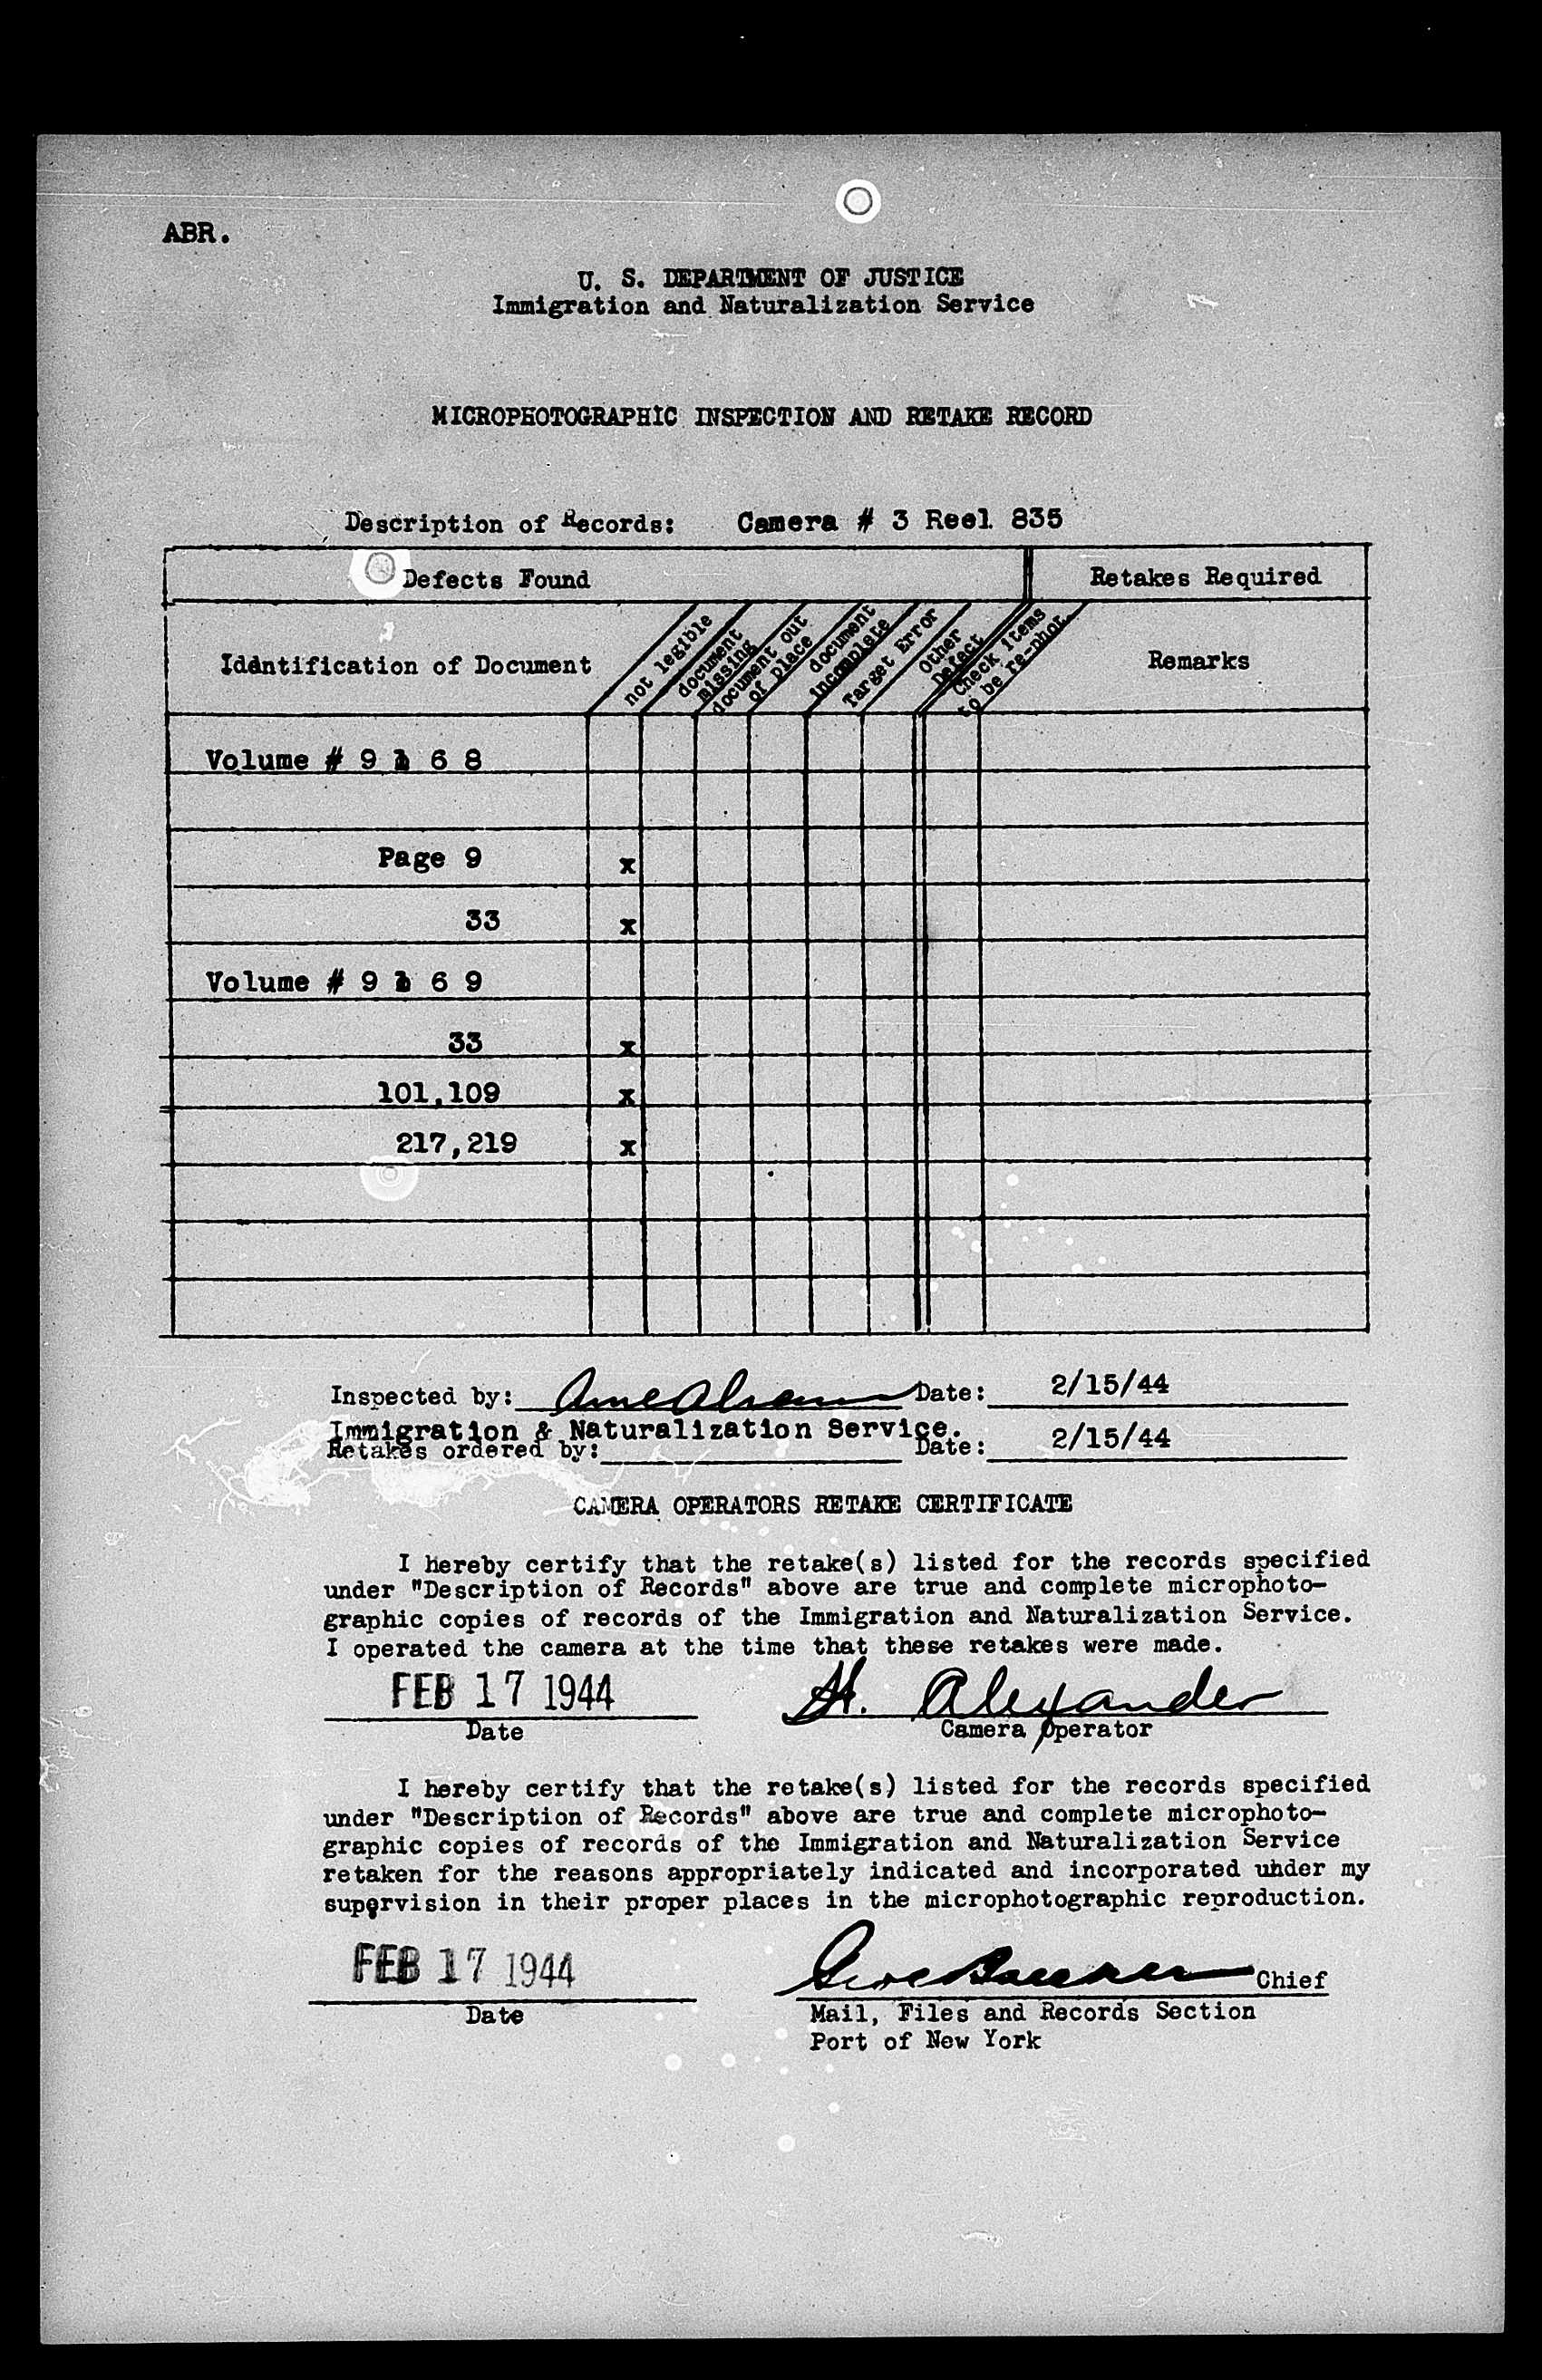 ABR.
U. S. DEPARTMENT OF JUSTICE
Immigration and Naturalization Service
MICROPHOTOGRAPHIC INSPECTION AND RETAKE RECORD
Description of Records: Camera # 3 Reel 835
Defects Found
Retakes Required
Identification of Document
not legible
document missing
document out of place
document incomplete
Target Error
Other Defect
Check items to be re-phot.
Remarks
Volume # 9 6 8
Page 9 x
33 x
Volume # 9 6 9
33 x
101,109 x
217,219 x
Inspected by: Date: 2/15/44
Immigration & Naturalization Service.
Retakes ordered by: Date: 2/15/44
CAMERA OPERATORS RETAKE CERTIFICATE
I hereby certify that the retake(s) listed for the records specified
under "Description of Records" above are true and complete microphoto-
graphic copies of records of the Immigration and Naturalization Service.
I operated the camera at the time that these retakes were made.
FEB 17 1944 H. Alexander
Date Camera Operator
I hereby certify that the retake(s) listed for the records specified
under "Description of Records" above are true and complete microphoto-
graphic copies of records of the Immigration and Naturalization Service
retaken for the reasons appropriately indicated and incorporated uhder my
supervision in their proper places in the microphotographic reproduction.
FEB 17 1944 Chief
Date Mail, Files and Records Section
Port of New York